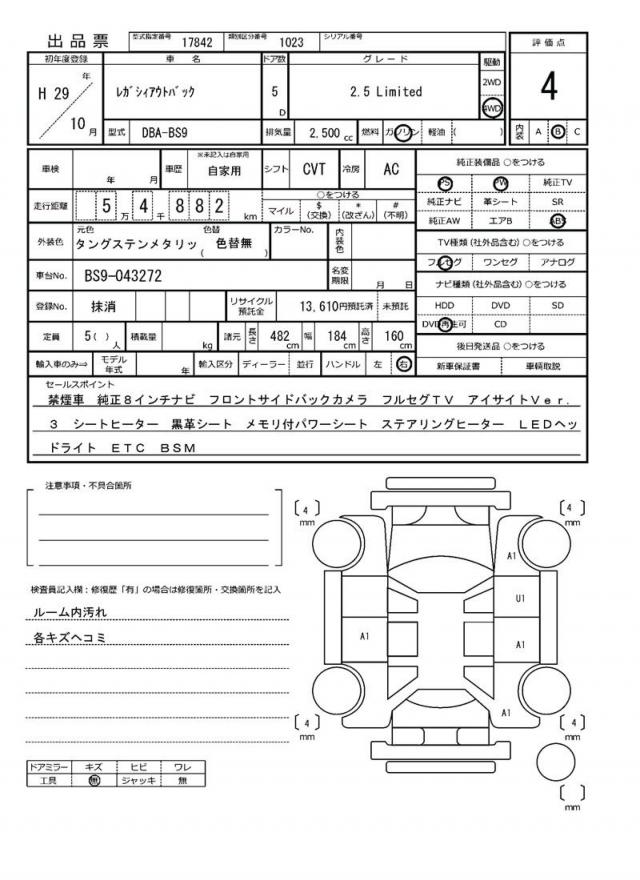 出品票 型式指定番号 17842 類別区分番号 1023 シリアル番号
初年度登録 車名 ドア数 グレード 駆動 評価点
H 29 年 10 月 ﾚｶﾞｼｨｱｳﾄﾊﾞｯｸ 5 D 2.5 Limited 2WD 4WD 4
型式 DBA-BS9 排気量 2,500 cc 燃料 ガソリン 軽油 ( ) 内装 A B C
車検 年 月 車歴 ※未記入は自家用 自家用 シフト CVT 冷房 AC 純正装備品 ○をつける
PS PW 純正TV
走行距離 5 万 4 千 8 8 2 km ○をつける
マイル $ (交換) * (改ざん) # (不明)
純正ナビ 革シート SR
純正AW エアB ABS
外装色 元色 タングステンメタリッ 色替 ( 色替無 ) カラーNo. 内装色
TV種類(社外品含む)○をつける
フルセグ ワンセグ アナログ
車台No. BS9-043272 名変期限 月 日
ナビ種類(社外品含む)○をつける
登録No. 抹消 リサイクル預託金 13,610円預託済 未預託
HDD DVD SD
DVD再生可 CD
定員 5( ) 人 積載量 kg 諸元 長さ 482 cm 幅 184 cm 高さ 160 cm
後日発送品 ○をつける
輸入車のみ⇒ モデル年式 年 輸入区分 ディーラー 並行 ハンドル 左 右 新車保証書 車輌取説
セールスポイント
禁煙車 純正8インチナビ フロントサイドバックカメラ フルセグTV アイサイトVer.
3 シートヒーター 黒革シート メモリ付パワーシート ステアリングヒーター LEDヘッ
ドライト ETC BSM
注意事項・不具合箇所
検査員記入欄：修復歴「有」の場合は修復箇所・交換箇所を記入
ルーム内汚れ
各キズヘコミ
ドアミラー キズ ヒビ ワレ
工具 無 ジャッキ 無
4 mm
4 mm
A1
U1
A1
A1
A1
4 mm
4 mm
mm